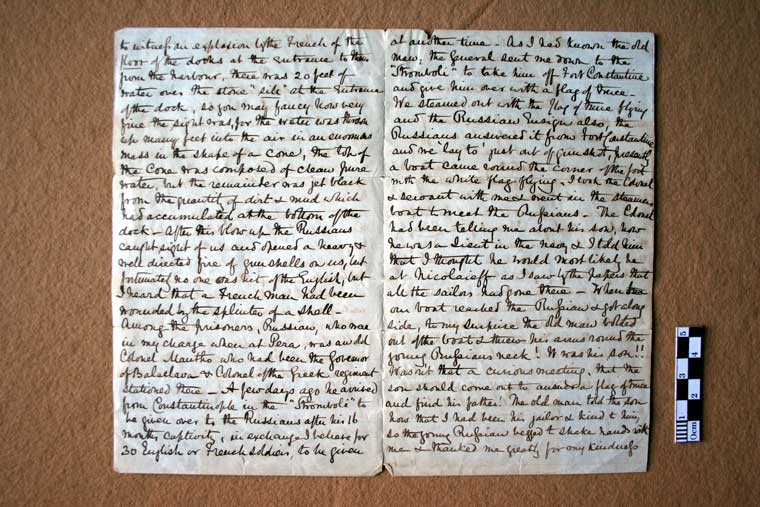 to witness an explosion by the French of the
floor of the docks at the entrance to them
from the harbour, there was 20 feet of
water over the stone "sill" at the Entrance
of the dock, so you may fancy how very
fine the sight was, for the water was thrown
up many feet into the air in an enormous
mass in the shape of a Cone, the top of
the Cone was composed of clean pure
water, but the remainder was jet black
from the quantity of dirt & mud which
had accumulated at the bottom of the
dock - after the blow up the Russians
caught sight of us and opened a heavy &
well directed fire of gun shells on us, but
fortunately no one was hit of the English, but
I heard that a French man had been
wounded by the splinter of a shell -
Among the prisoners, Russian, who was
in my charge when at Pera, was an old
Colonel who had been the Governor
of Balaclava & Colonel of the Greek regiment
stationed there - A few days ago he arrived
from Constantinople in the "Stromboli" to
be given over to the Russians after his 16
months captivity, in exchange I believe for
30 English or French soldiers, to be given
at another time - As I had known the old
man, the General sent me down to the
"Stromboli" to take him off Fort Constantine
and give him over with a flag of truce -
We steamed out with the flag of truce flying
and the Russian Ensign also, the
Russians answered it from Fort Constantine
and we 'lay to' just out of gunshot, presently
a boat came round the corner of the fort
with the white flag flying - I took the Colonel
& servant with me & went in the steamers
boat to meet the Russians - The Colonel
had been telling me about his son, how
he was a Lieut in the navy, & I told him
that I thought he would most likely be
at Nicolaieff as I saw by the papers that
all the sailors had gone there - When
our boat reached the Russian & got along
side, to my surprise the old man bolted
out of the boat & threw his arms round the
young Russians neck! It was his son!!
Was not that a curious meeting, that the
son should come out to answer a flag of truce
and find his father! The old man told the son
how that I had been his jailor & kind to him,
so the young Russian begged to shake hands with
me & thanked me greatly for my kindness
5
4
3
2
1
0cm